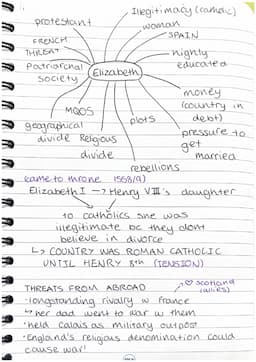 Illegitimacy (catholic)
protestant
woman
FRENCH
THREAT
SPAIN
highly
educated
Patriarchal
society
Elizabeth
money
(country in
debt)
MQOS
plots
geographical
divide
Religious
divide
pressure to
get
married
rebellions
came to throne
Elizabeth I → Henry VIII's daughter
to catholics she was
illegitimate bc they dont
believe in divorce
↳ COUNTRY WAS ROMAN CATHOLIC
UNTIL HENRY 8th (TENSION)
THREATS FROM ABROAD
♡ scotland
(allies)
·longstanding rivalry w france
↳ her dad went to war w them
·held Calais as military outpost
·England's religious denomination could
cause war!